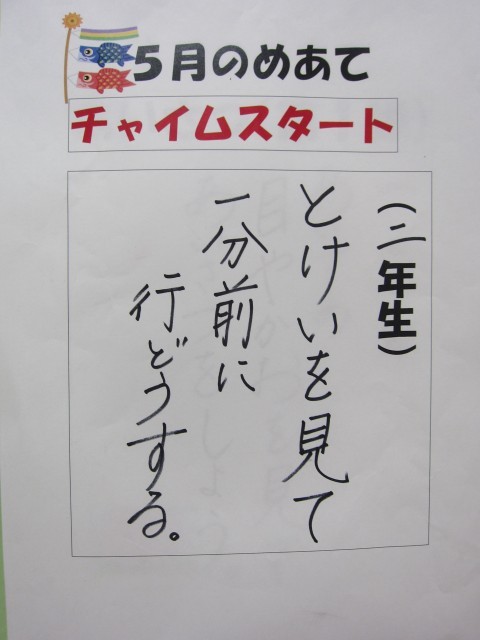 5月のめあて
チャイムスタート
(二年生)
とけいを見て
一分前に
行どうする。